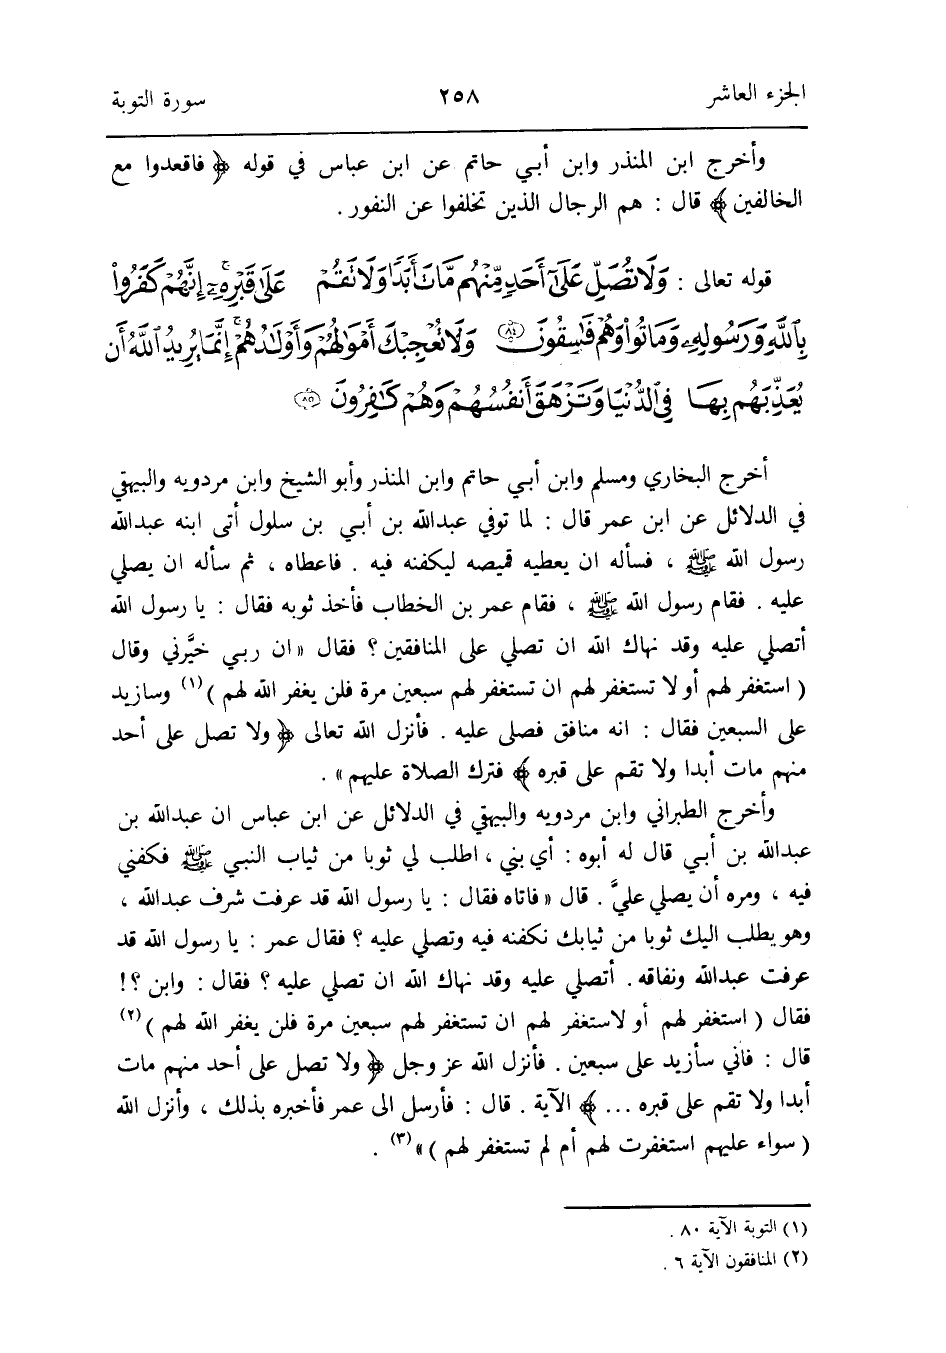 الجزء العاشر ٢٥٨ سورة التوبة
وأخرج ابن المنذر وابن أبي حاتم عن ابن عباس في قوله ﴿ فاقعدوا مع
الخالفين ﴾ قال : هم الرجال الذين تخلفوا عن النفور .
قوله تعالى : وَلَا تُصَلِّ عَلَىٰٓ أَحَدٍ مِّنْهُم مَّاتَ أَبَدًا وَلَا تَقُمْ عَلَىٰ قَبْرِهِۦٓ ۖ إِنَّهُمْ كَفَرُوا۟
بِٱللَّهِ وَرَسُولِهِۦ وَمَاتُوا۟ وَهُمْ فَٰسِقُونَ ﴿٨٤﴾ وَلَا تُعْجِبْكَ أَمْوَٰلُهُمْ وَأَوْلَٰدُهُمْ ۚ إِنَّمَا يُرِيدُ ٱللَّهُ أَن
يُعَذِّبَهُم بِهَا فِى ٱلدُّنْيَا وَتَزْهَقَ أَنفُسُهُمْ وَهُمْ كَٰفِرُونَ ﴿٨٥﴾
أخرج البخاري ومسلم وابن أبي حاتم وابن المنذر وأبو الشيخ وابن مردويه والبيهقي
في الدلائل عن ابن عمر قال : لما توفي عبدالله بن أبي بن سلول أتى ابنه عبدالله
رسول الله ﷺ ، فسأله ان يعطيه قميصه ليكفنه فيه . فاعطاه ، ثم سأله ان يصلي
عليه . فقام رسول الله ﷺ ، فقام عمر بن الخطاب فأخذ ثوبه فقال : يا رسول الله
أتصلي عليه وقد نهاك الله ان تصلي على المنافقين ؟ فقال « ان ربي خيَّرني وقال
( استغفر لهم أو لا تستغفر لهم ان تستغفر لهم سبعين مرة فلن يغفر الله لهم )(١) وسازيد
على السبعين فقال : انه منافق فصلى عليه . فأنزل الله تعالى ﴿ ولا تصل على أحد
منهم مات أبدا ولا تقم على قبره ﴾ فترك الصلاة عليهم » .
وأخرج الطبراني وابن مردويه والبيهقي في الدلائل عن ابن عباس ان عبدالله بن
عبدالله بن أبي قال له أبوه : أي بني ، اطلب لي ثوبا من ثياب النبي ﷺ فكفني
فيه ، ومره أن يصلي عليَّ . قال « فاتاه فقال : يا رسول الله قد عرفت شرف عبدالله ،
وهو يطلب اليك ثوبا من ثيابك نكفنه فيه وتصلي عليه ؟ فقال عمر : يا رسول الله قد
عرفت عبدالله ونفاقه . أتصلي عليه وقد نهاك الله ان تصلي عليه ؟ فقال : وابن ؟!
فقال ( استغفر لهم أو لاستغفر لهم ان تستغفر لهم سبعين مرة فلن يغفر الله لهم )(٢)
قال : فاني سأزيد على سبعين . فأنزل الله عز وجل ﴿ ولا تصل على أحد منهم مات
أبدا ولا تقم على قبره ... ﴾ الآية . قال : فأرسل الى عمر فأخبره بذلك ، وأنزل الله
( سواء عليهم استغفرت لهم أم لم تستغفر لهم )»(٣) .
(١) التوبة الآية ٨٠ .
(٢) المنافقون الآية ٦ .